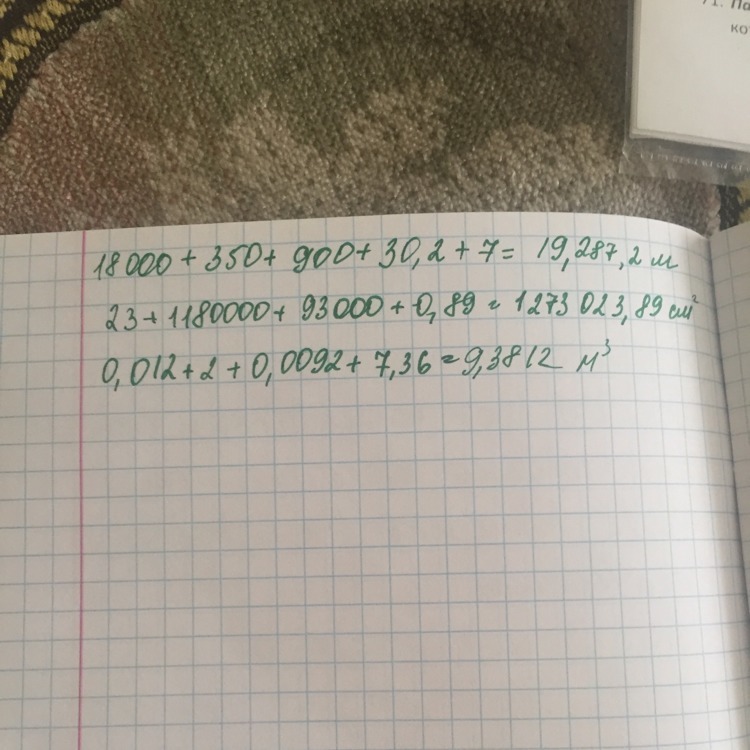 71. Па
ко
18000 + 350 + 900 + 30,2 + 7 = 19,287,2 м
23 + 1180000 + 93000 + 0,89 = 1273 023,89 см²
0,012 + 2 + 0,0092 + 7,36 = 9,3812 м³